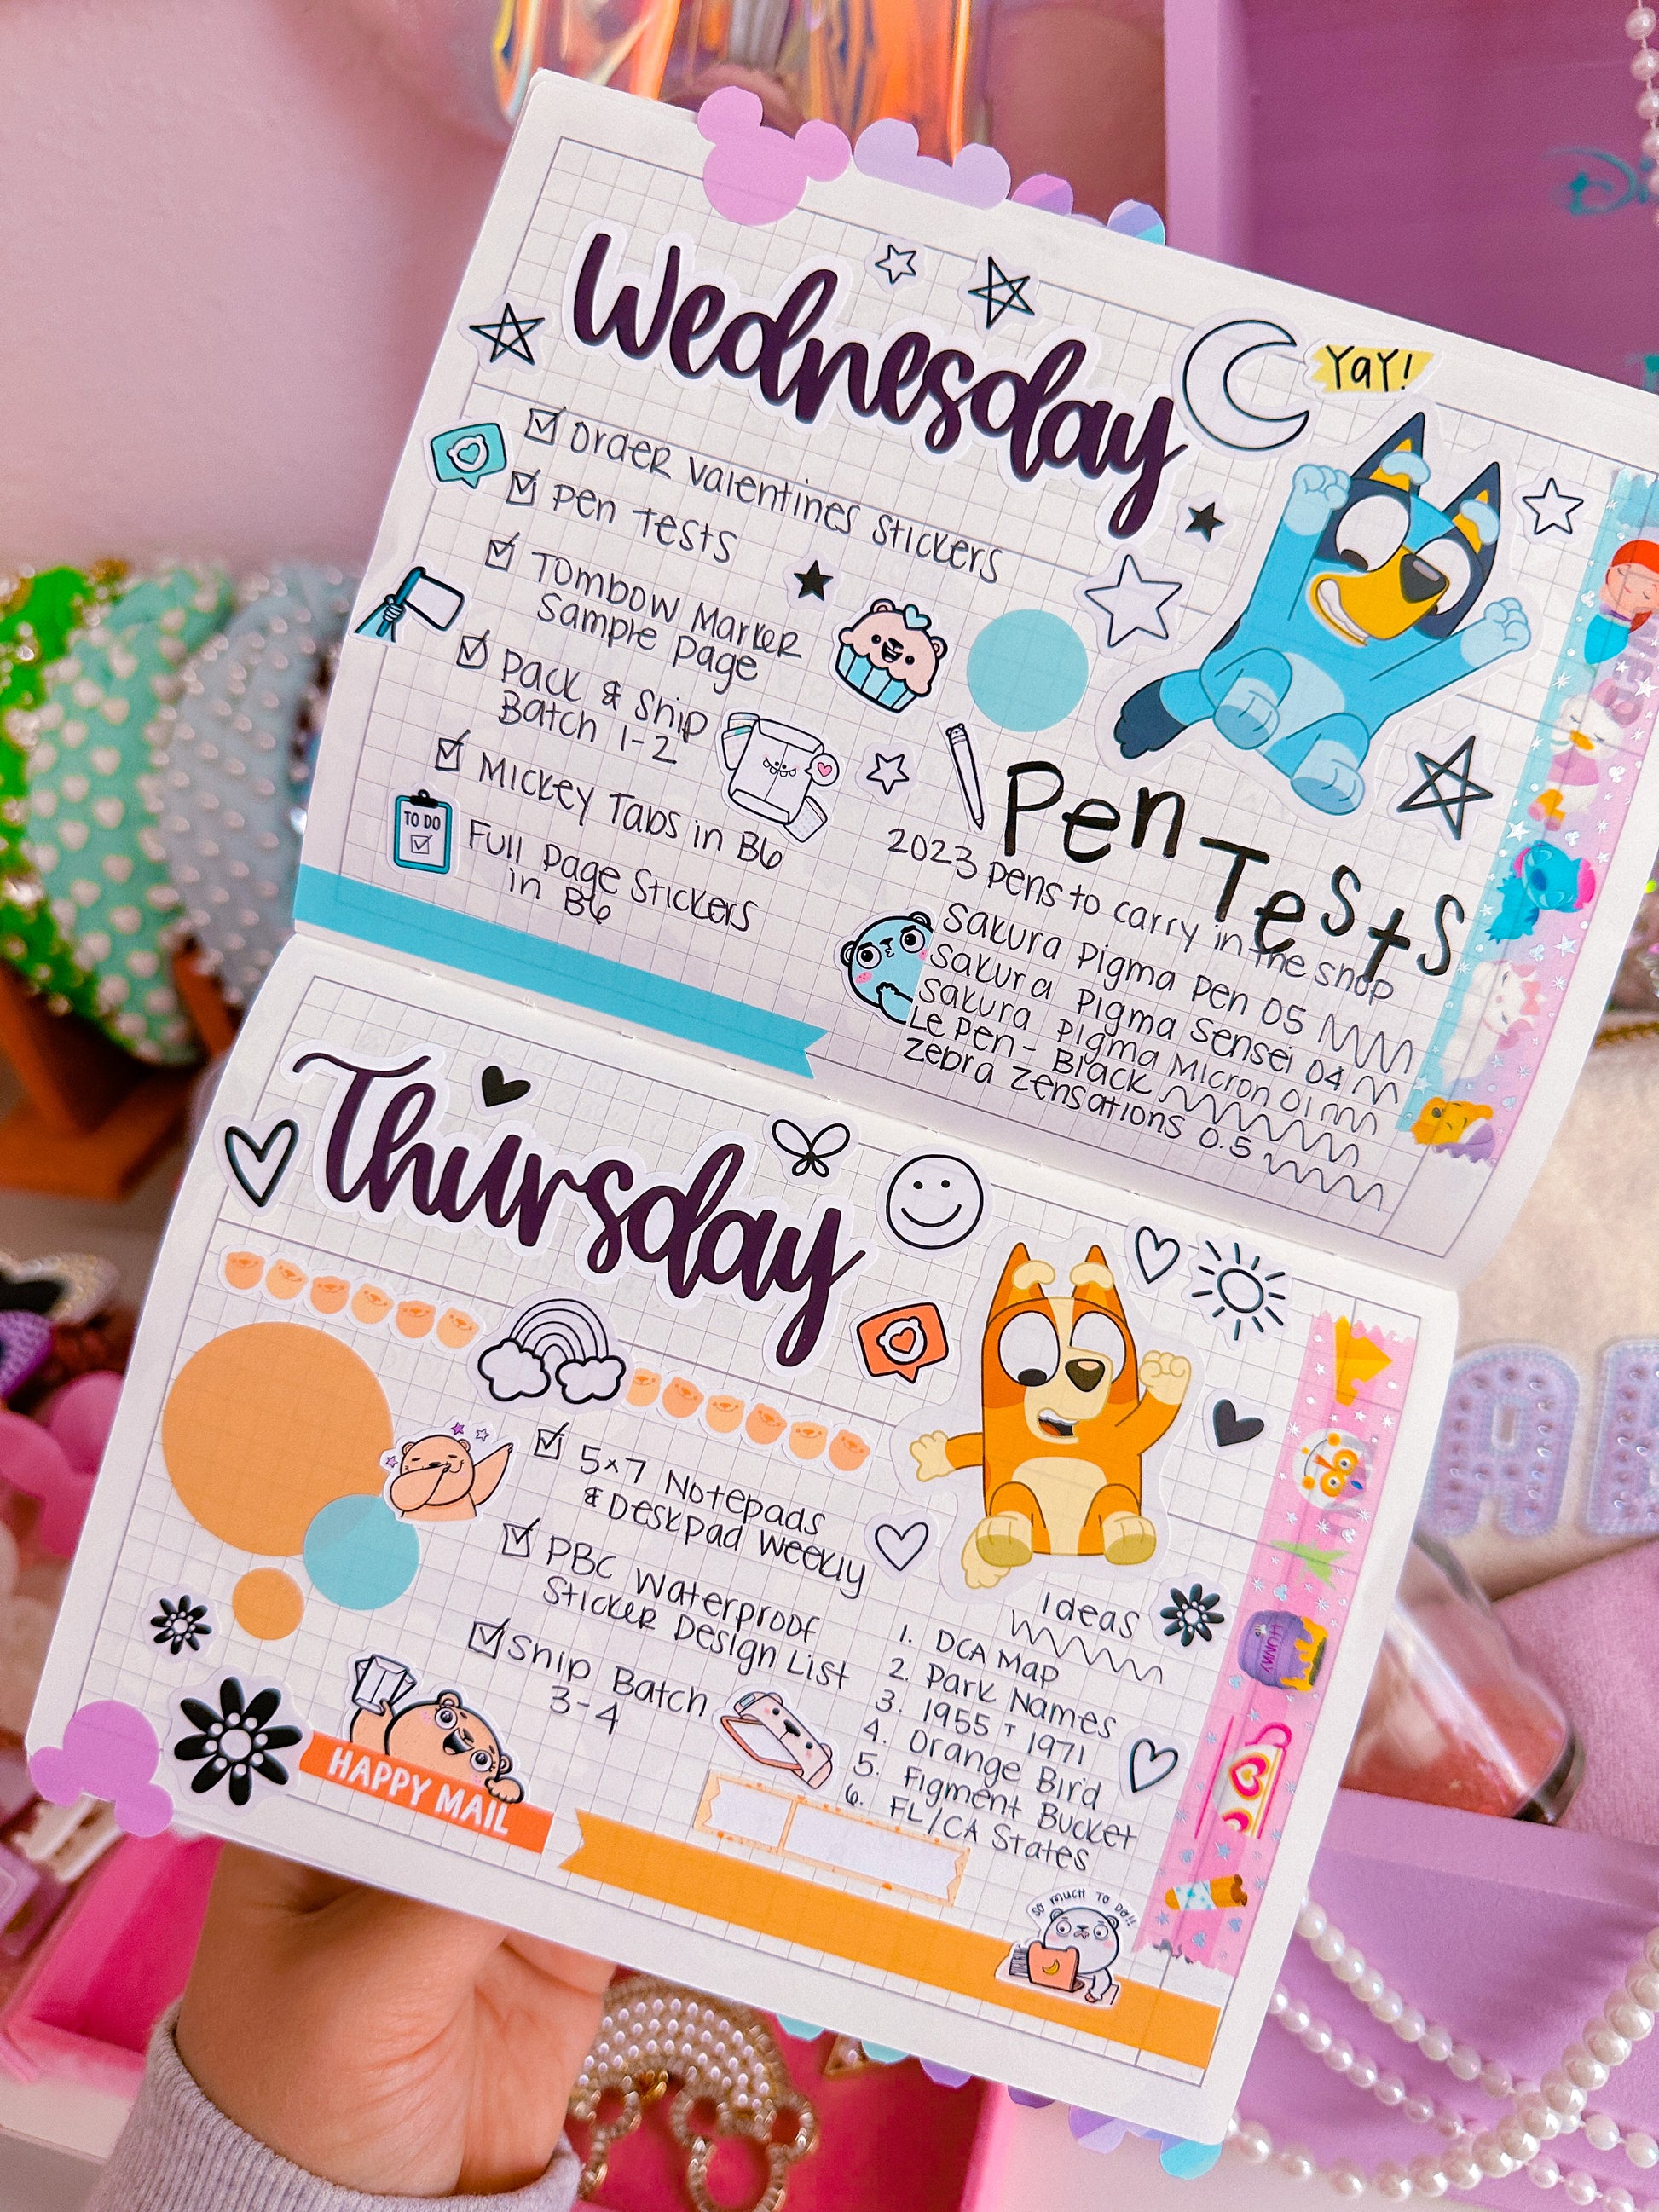 Wednesday
YaY!
Order Valentines Stickers
Pen Tests
Tombow Marker
Sample Page
Pack & Ship
Batch 1-2
Mickey Tabs in B6
TO DO
Full Page Stickers
in B6
Pen Tests
2023 Pens to carry in the shop
Sakura Pigma Pen 05
Sakura Pigma Sensei 04
Sakura Pigma Micron 01
Le Pen - Black
Zebra Zensations 0.5
Thursday
5x7 Notepads
& Deskpad Weekly
PBC Waterproof
Sticker Design List
Ship Batch
3-4
HAPPY MAIL
Ideas
1. DCA Map
2. Park Names
3. 1955 + 1971
4. Orange Bird
5. Figment Bucket
6. FL/CA States
HUNNY
SO MUCH TO DO!!